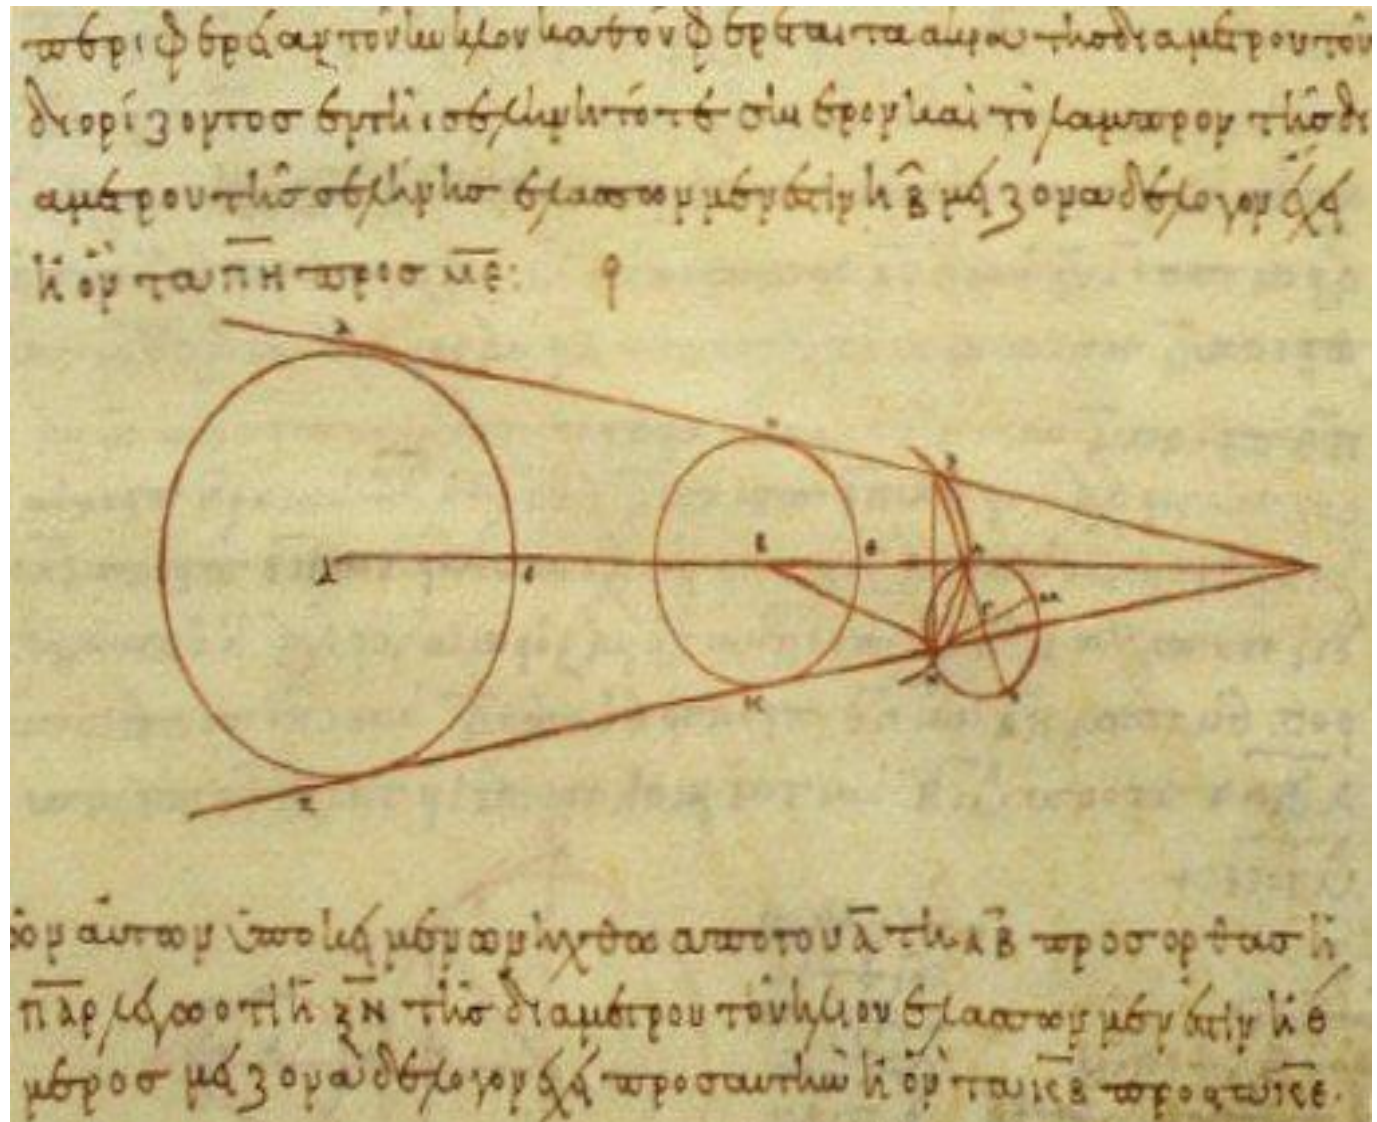 περιφέρειαν τοῦ κύκλου καθ' οὗ φέρεται τὰ ἄκρα τῆς διαμέτρου τοῦ
διορίζοντος ἐν τῆι σελήνηι τό τε σκιερὸν καὶ τὸ λαμπρὸν τῆς δι
αμέτρου τῆς σελήνης ἐλάσσων μέν ἐστιν ἢ β̄ μείζονα δὲ λόγον ἔχει
ἢ ὃν τὰ π̄η̄ πρὸς μ̄ε̄:
Α
Β
Θ
Κ
αὐτῶν ὑποκειμένων ἤχθω ἀπὸ τοῦ λ̄ τῆι λ̄β̄ πρὸς ὀρθὰς ἡ
π̄λ̄ρ̄ λέγω ὅτι ἡ ξ̄ν̄ τῆς διαμέτρου τοῦ ἡλίου ἐλάσσων μέν ἐστιν ἢ θ
μέρος μείζονα δὲ λόγον ἔχει πρὸς αὐτὴν ἢ ὃν τὰ κ̄β̄ πρὸς